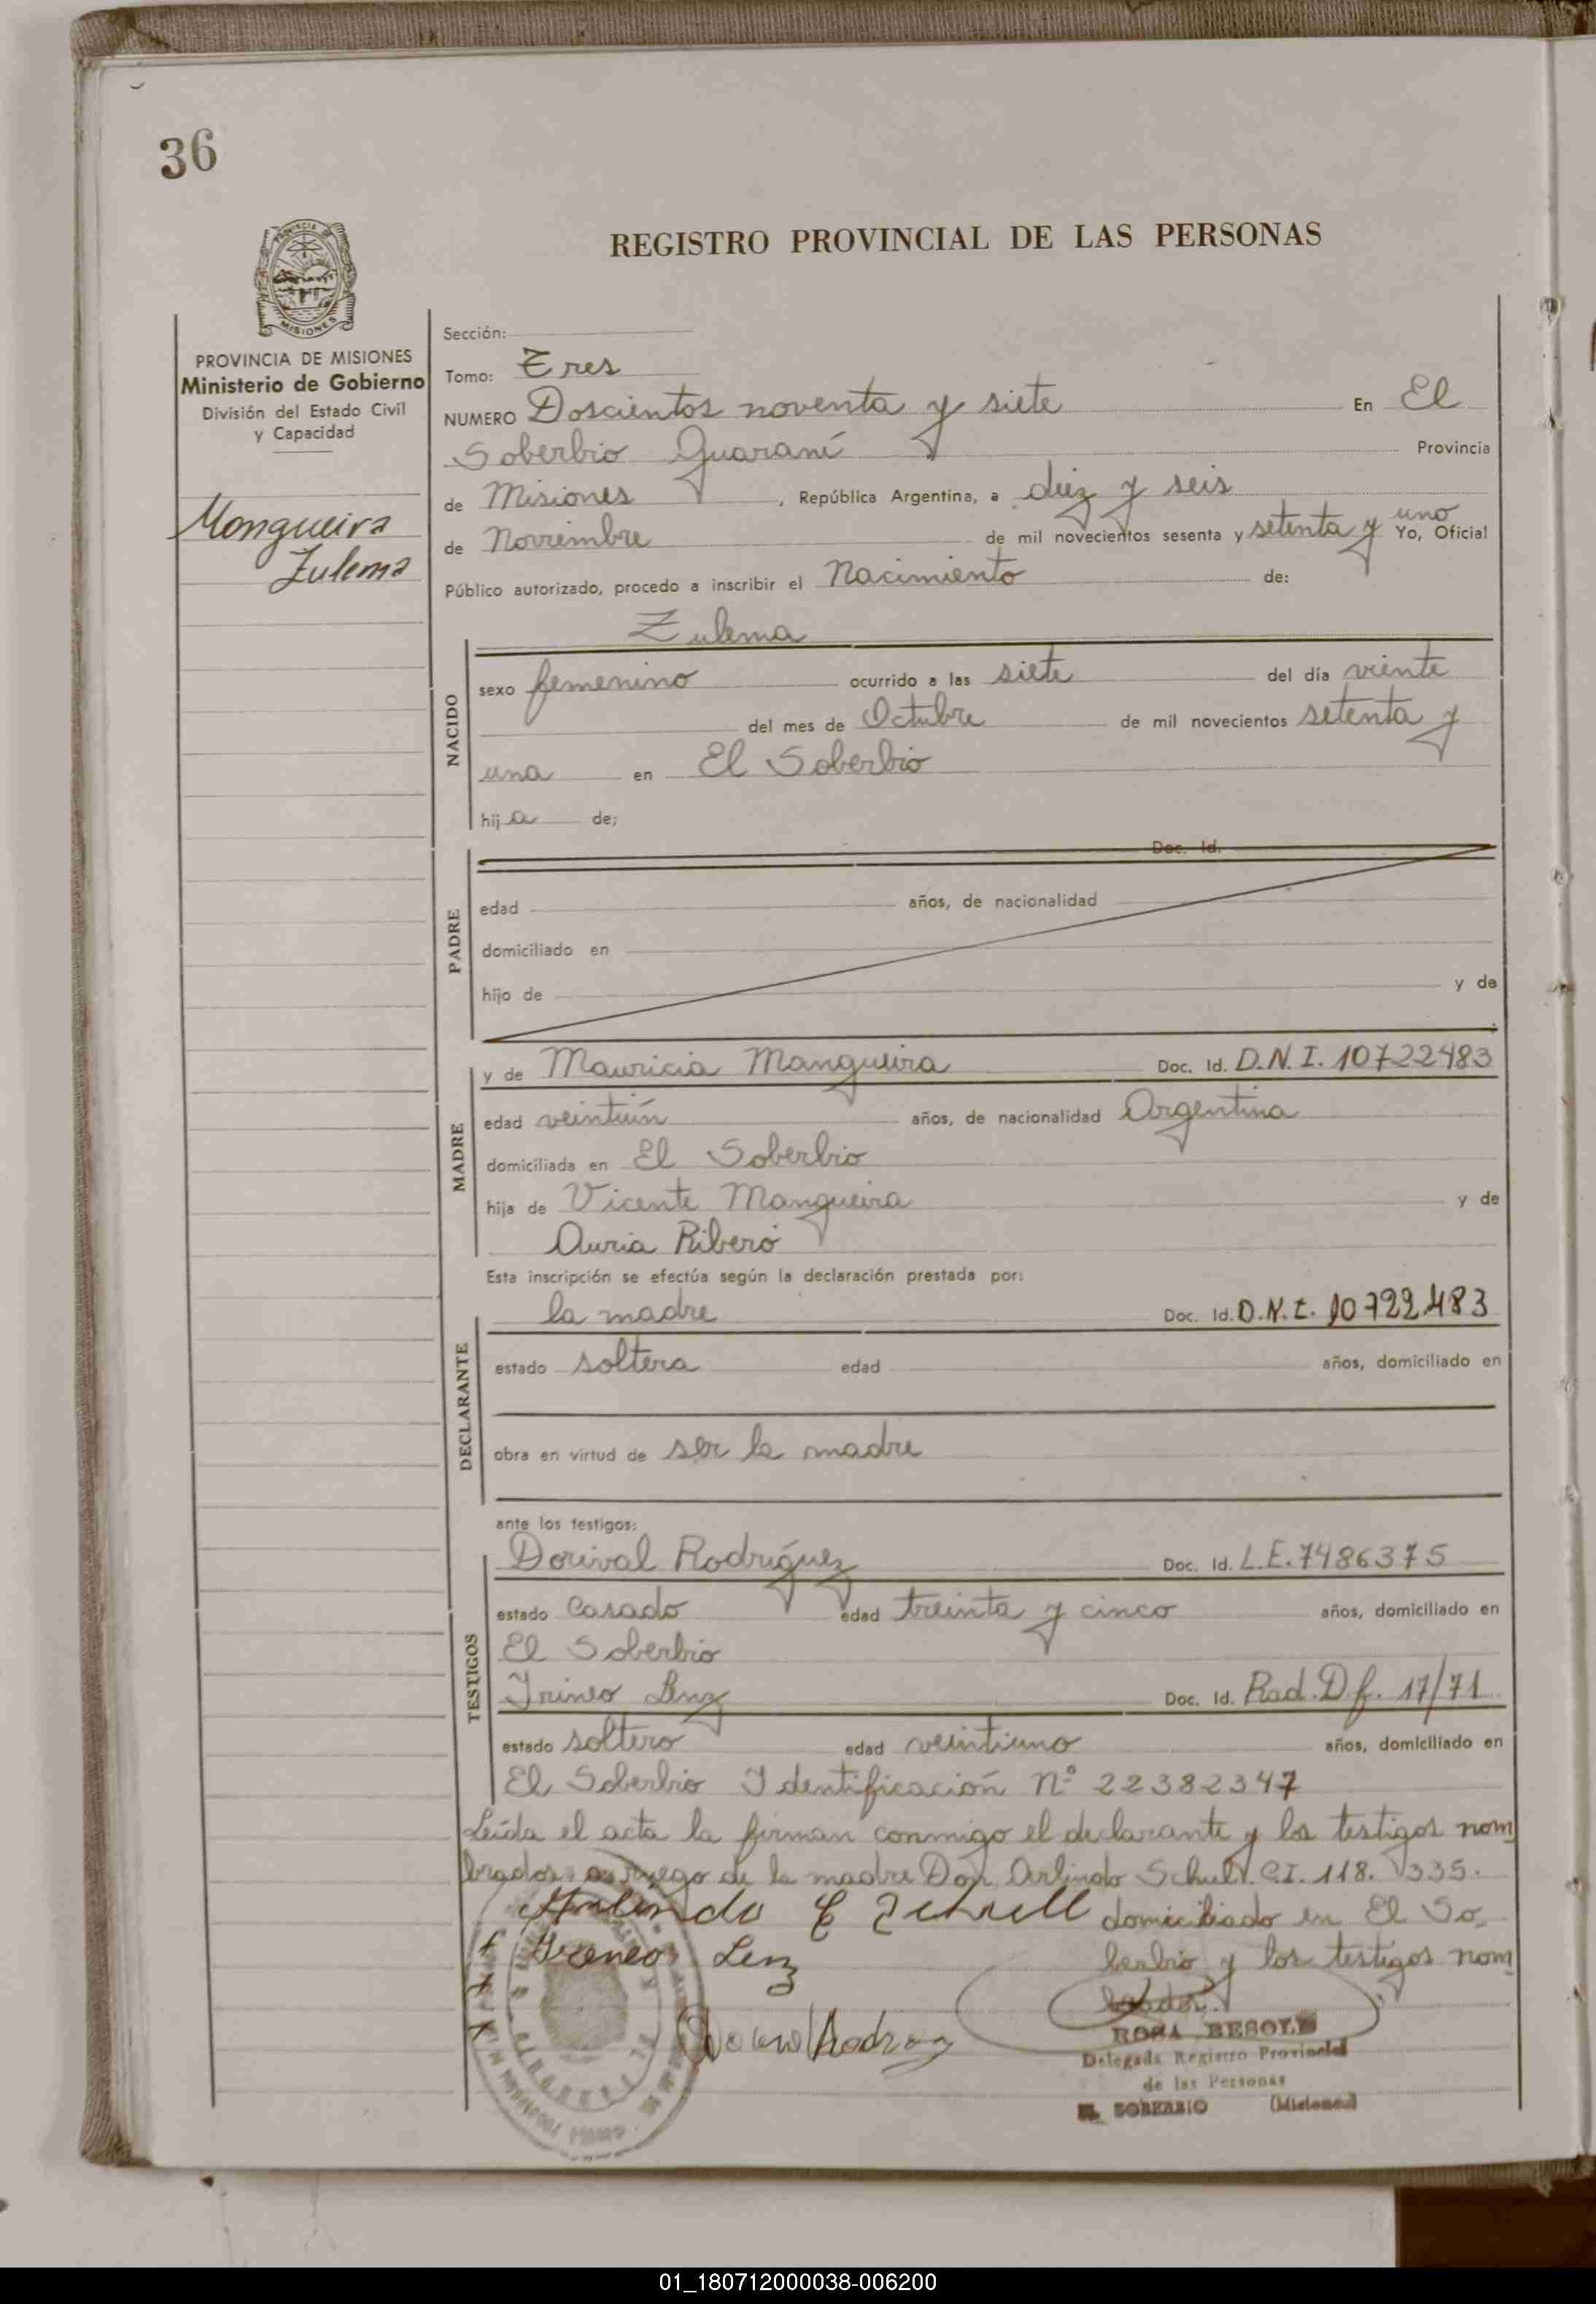 36
REGISTRO PROVINCIAL DE LAS PERSONAS
PROVINCIA DE MISIONES
Ministerio de Gobierno
División del Estado Civil
y Capacidad
Mongueira
Zulema
Sección:
Tomo: Tres
NUMERO Doscientos noventa y siete En El
Soberbio Guaraní Provincia
de Misiones, República Argentina, a diez y seis
de Noviembre de mil novecientos sesenta y setenta y uno Yo, Oficial
Público autorizado, procedo a inscribir el Nacimiento de:
Zulema
NACIDO
sexo femenino ocurrido a las siete del día veinte
del mes de Octubre de mil novecientos setenta y
una en El Soberbio
hija de;
PADRE
Doc. Id.
edad años, de nacionalidad
domiciliado en
hijo de y de
MADRE
y de Mauricia Mangueira Doc. Id. D.N.I. 10722483
edad veintiún años, de nacionalidad Argentina
domiciliada en El Soberbio
hija de Vicente Mangueira y de
Auria Ribero
Esta inscripción se efectúa según la declaración prestada por:
DECLARANTE
la madre Doc. Id. D.N.I. 10722483
estado soltera edad años, domiciliado en
obra en virtud de ser la madre
ante los testigos:
TESTIGOS
Dorival Rodríguez Doc. Id. L.E. 7486375
estado Casado edad treinta y cinco años, domiciliado en
El Soberbio
Irineo Lenz Doc. Id. Rad. D.f. 17/71
estado soltero edad veintiuno años, domiciliado en
El Soberbio Identificación Nº 22382347
Leída el acta la firman conmigo el declarante y los testigos nom
brados a ruego de la madre Don Arlindo Schult C.I. 118.335.
Arlindo domiciliado en El So
Ireneo Lenz berbio y los testigos nom
brados.
ROSA BESOLD
Delegada Registro Provincial
de las Personas
EL SOBERBIO (Misiones)
01_180712000038-006200